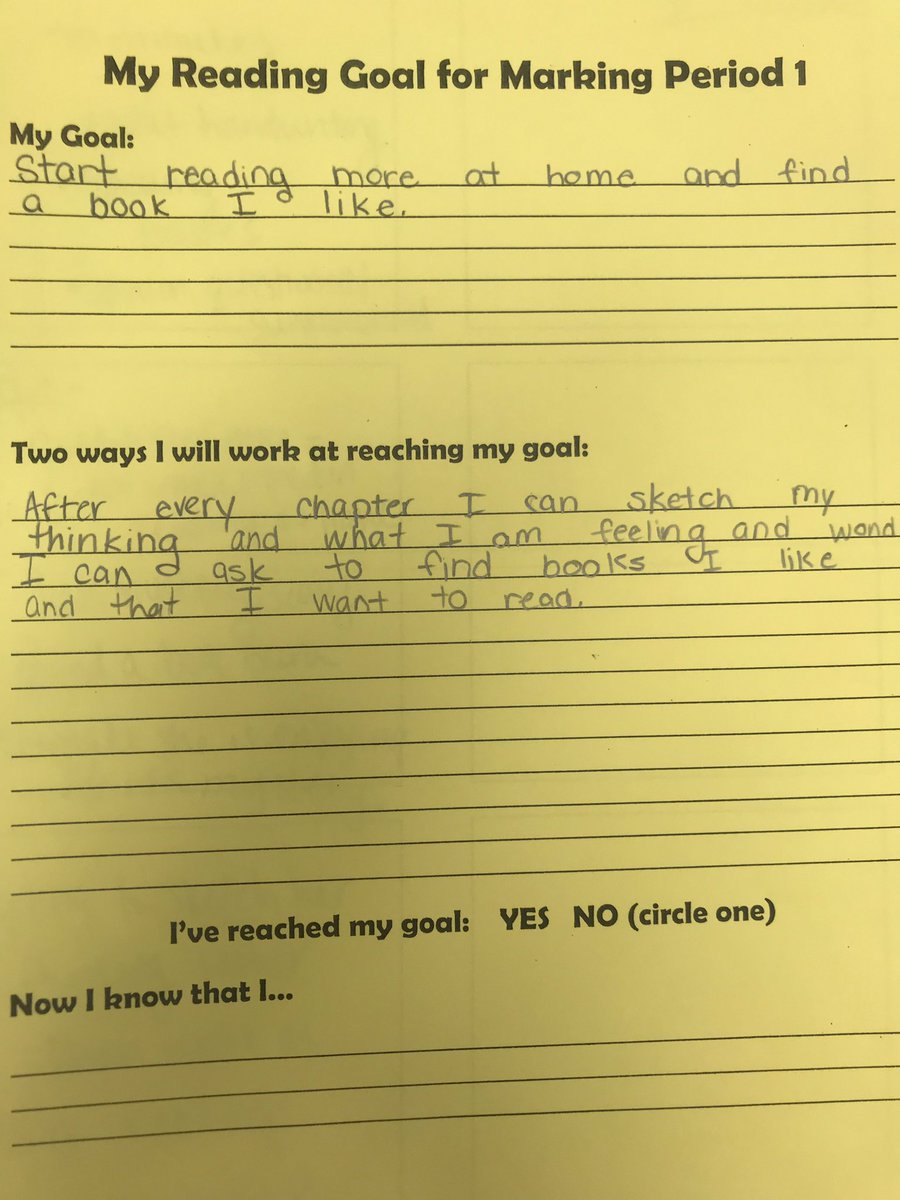 My Reading Goal for Marking Period 1
My Goal:
Start reading more at home and find
a book I like.
Two ways I will work at reaching my goal:
After every chapter I can sketch my
thinking and what I am feeling and wond
I can ask to find books I like
and that I want to read.
I've reached my goal: YES NO (circle one)
Now I know that I...